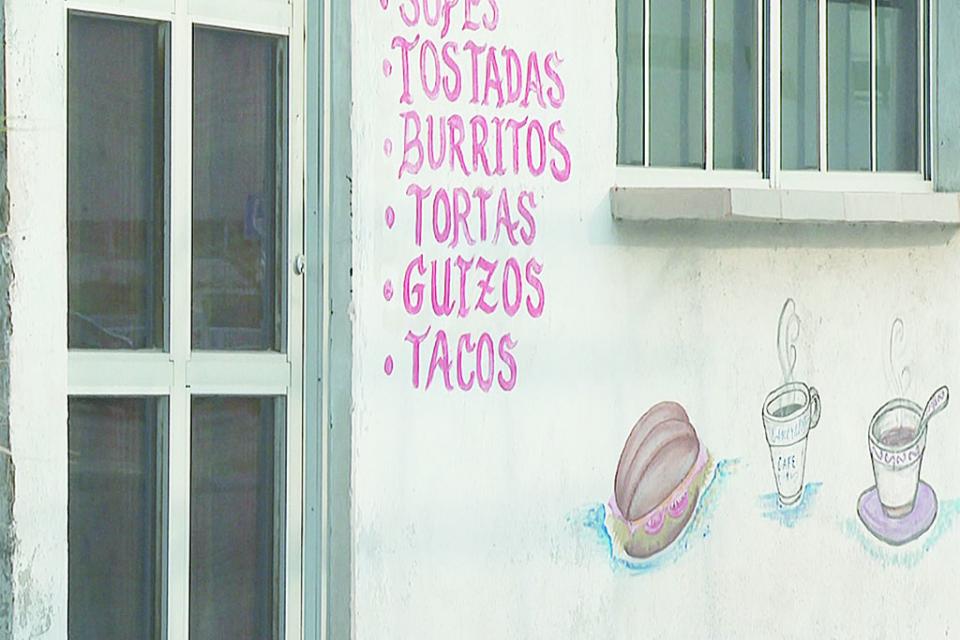 • SOPES
• TOSTADAS
• BURRITOS
• TORTAS
• GUIZOS
• TACOS
CAFE